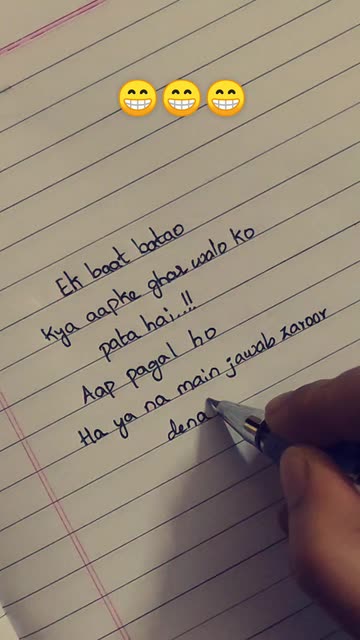 Ek baat batao
Kya aapke ghar walo ko
pata hai...!!
Aap pagal ho
Ha ya na main jawab zaroor
dena